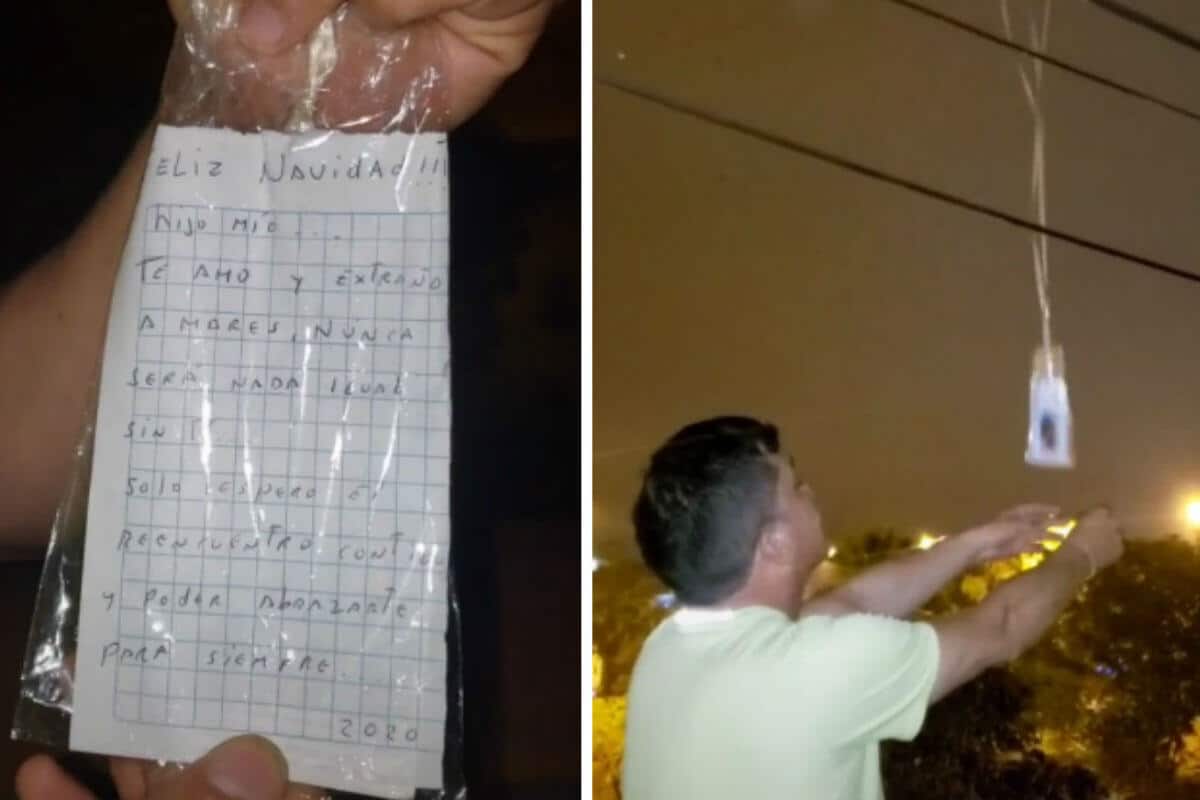 FELIZ NAVIDAD!!!
hijo mío....
TE AMO y EXTRAÑO
A MARES, NÚNCA
SERÁ NADA IGUAL
SIN TÍ
SOlO ESPERO El
REENCUENTRO CONTIGO
y PODER ABRAZARTE
PARA SIEMPRE.
2020